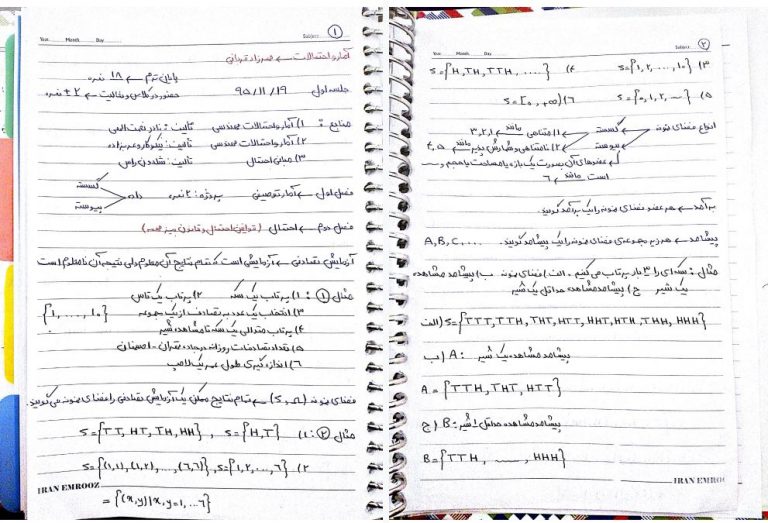 Year. Month. Day. Subject. ①
آمار و احتمالات ← مهرزاد قربانی
پایان ترم ← ۱۸ نمره
جلسه اول ۹۵/۱۱/۱۹ حضور در کلاس و فعالیت ← ۲ ± نمره
منابع : ۱) آمار و احتمالات مهندسی تألیف : نادر نعمت الهی
۲) آمار و احتمالات مهندسی تألیف :
۳) مبانی احتمال تألیف : شلدون راس
گسسته
فصل اول ← آمار توصیفی پروژه : ۲ نمره داده
پیوسته
فصل دوم ← احتمال (قوانین احتمال و قانون بیز مهمه)
آزمایش تصادفی ← آزمایشی است که تمام نتایج آن معلوم ولی نتیجه آن نامعلوم است
مثال ① : ۱) پرتاب یک سکه ۲) پرتاب یک تاس
۳) انتخاب یک عدد به تصادف از یک مجموعه {1, ..., 10}
۴) پرتاب متوالی یک سکه تا مشاهده شیر
۵) تعداد تصادفات روزانه در جاده تهران - اصفهان
۶) اندازه گیری طول عمر یک لامپ
فضای نمونه (S, Ω) ← تمام نتایج ممکن یک آزمایش تصادفی را فضای نمونه می گویند.
مثال ② : ۱) S={H,T} , S={TT, HT, TH, HH}
۲) S={1,2,...,6} , S={(1,1),(1,2),...,(6,6)}
= {(x,y)|x,y=1,...6}
IRAN EMROOZ
Year. Month. Day. Subject. ②
۳) S={1,2,...,10} ۴) S={H,TH,TTH,....}
۵) S={0,1,2,...} ۶) S=[0,+∞)
انواع فضای نمونه گسسته ۱) متناهی مانند ۱,۲,۳
پیوسته ۲) نامتناهی و شمارش پذیر مانند ۴,۵
عضوهای آن بصورت یک بازه یا مساحت یا حجم و ...
است مانند ۶
برآمد ← هر عضو فضای نمونه را یک برآمد گویند.
پیشامد ← هر زیر مجموعه ی فضای نمونه را یک پیشامد گویند. A,B,C,....
مثال : سکه ای را ۳ بار پرتاب می کنیم. الف) فضای نمونه ب) پیشامد مشاهده
یک شیر ج) پیشامد مشاهده حداقل یک شیر
الف) S={TTT,TTH,THT,HTT,HHT,HTH,THH,HHH}
ب) A : پیشامد مشاهده یک شیر
A={TTH,THT,HTT}
ج) B : پیشامد مشاهده حداقل ۱ شیر
B={TTH, ......, HHH}
IRAN EMROOZ